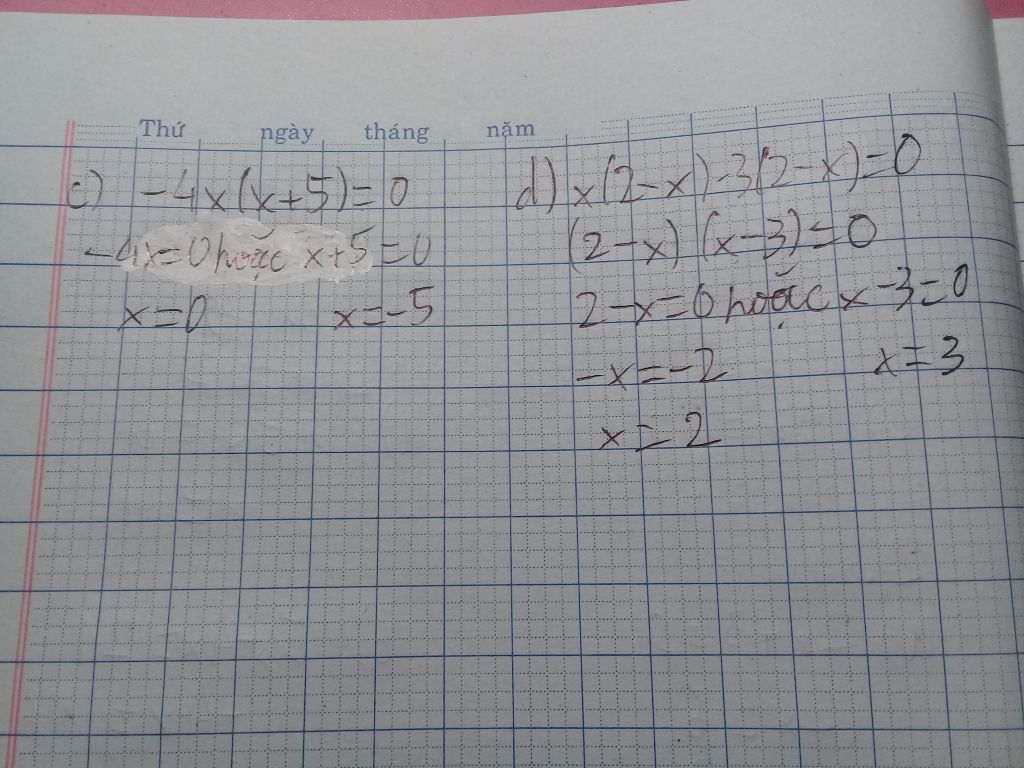 Thứ ngày tháng năm
c) -4x(x+5)=0
-4x=0 hoặc x+5=0
x=0 x=-5
d) x(2-x)-3(2-x)=0
(2-x) (x-3)=0
2-x=0 hoặc x-3=0
-x=-2 x=3
x=2